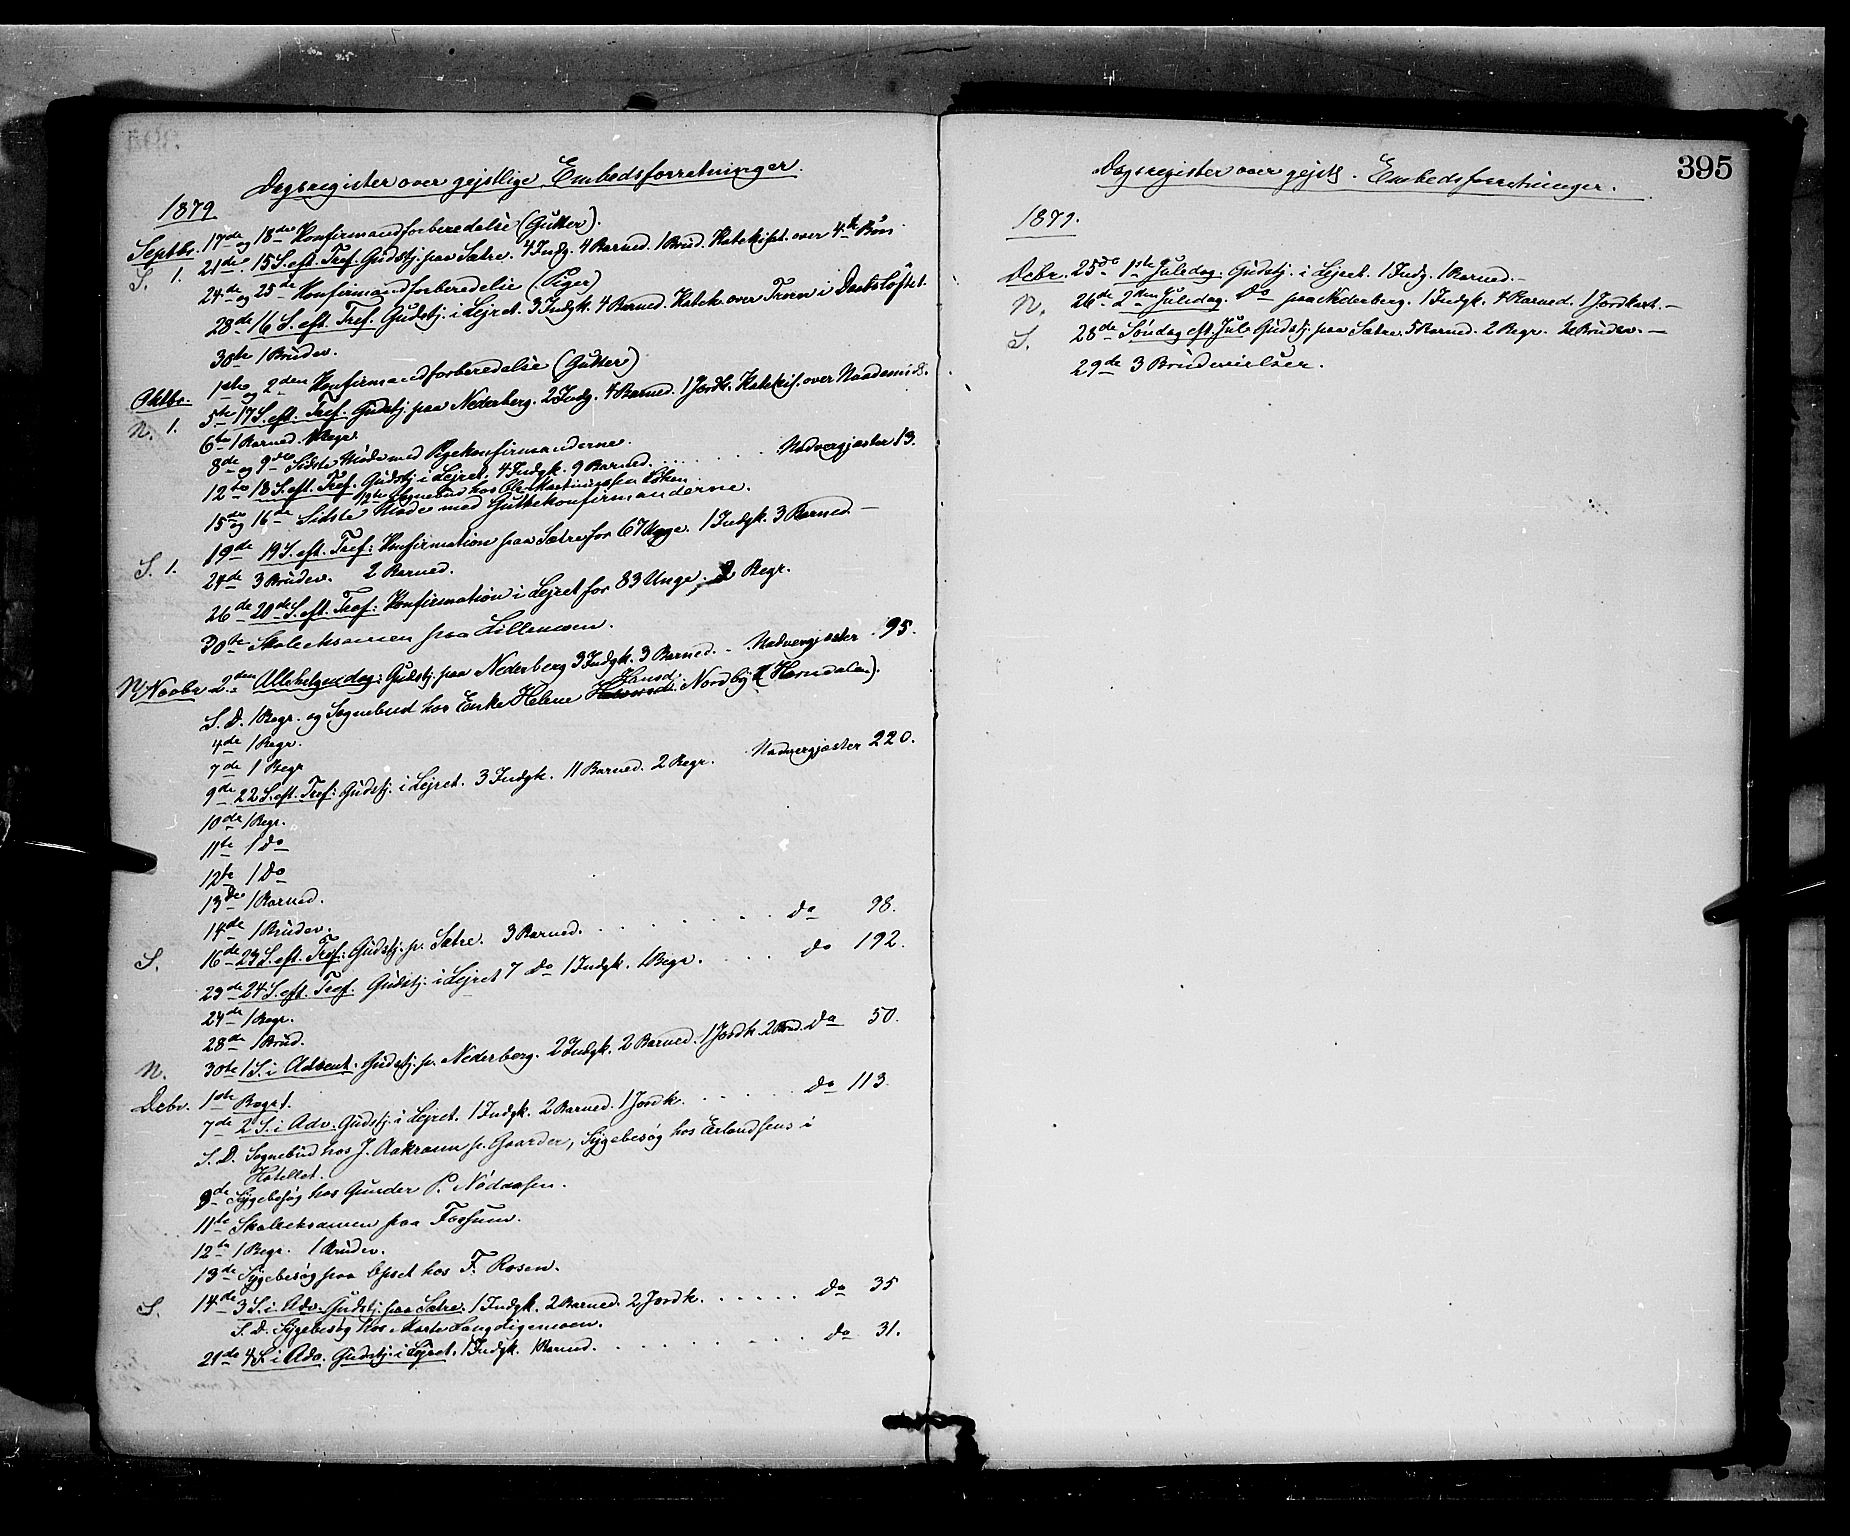 Dagsregister over gejstlige Embedsforretninger.
1879.
Septbr. 17de og 18de Konfirmandforberedelse (Gutter).
S. 1. 21de 15 S. eft. Tref. Gudstj. paa Sætre. 4 Indg. 4 Barned. 1 Brud. Katekist. over 4de Bøn
24de og 25de Konfirmandforberedelse (Piger)
28de 16 S. eft. Tref. Gudstj. i Lejret. 3 Indgk. 4 Barned. Katek. over Troen i Daabsløftet.
30te 1 Brudev.
Oktbr. 1ste og 2den Konfirmandforberedelse (Gutter)
N. 1. 5te 17 S. eft. Tref. Gudstj. paa Nederberg. 2 Indg. 4 Barned. 1 Jordk. Katekis. over Naademid.
6te 1 Barned. 1 Begr.
8de og 9de Sidste Møde med Pigekonfirmanderne.
12te 18 S. eft. Tref. Gudstj. i Lejret. 4 Indgk. 9 Barned. . . . . . . . Nadvergjæster 13.
12te Sognebud hos Ole Martinussen Løken.
15de og 16de Sidste Møde med Guttekonfirmanderne.
S. 1. 19de 19 S. eft. Tref: Konfirmation paa Sætre for 67 Unge. 1 Indgk. 3 Barned. —
24de 3 Brudev. 2 Barned.
26de 20de S. eft. Tref: Konfirmation i Lejret for 83 Unge. 2 Begr.
30te Skoleeksamen paa Lillemoen.
N. Novbr. 2den Allehelgendag: Gudstj. paa Nederberg 3 Indgk. 3 Barned. - Nadvergjæster 95.
S. D. 1 Begr. og Sognebud hos Enke Helene Hansd. Nordby (Horndalen).
4de 1 Begr.
7de 1 Begr
9de 22 S. eft. Tref: Gudstj. i Lejret. 3 Indgk. 11 Barned. 2 Begr. Nadvergjæster 220.
10de 1 Begr.
11te 1 Do
12te 1 Do
13de 1 Barned.
14de 1 Brudev.
S. 16de 23 S. eft. Tref: Gudstj. p. Sætre. 3 Barned. . . . . . . . Do 98.
23de 24 S. eft. Tref. Gudstj. i Lejret 7 Do 1 Indgk. 1 Begr. . . . . Do 192.
24de 1 Begr.
28de 1 Brud.
N. 30te 1 S. i Advent. Gudstj. p. Nederberg. 2 Indgk. 2 Barned. 1 Jordk. 2 Brud. Do 50.
Debr. 1ste Begr.
7de 2 S. i Adv. Gudstj. i Lejret. 1 Indgk. 2 Barned. 1 Jordk. . . . . . Do 113.
S. D. Sognebud hos J. Aakrann p. Gaarder, Sygebesøg hos Erlandsens i
Hotellet.
9de Sygebesøg hos Gunder P. Nødaasen.
11te Skoleeksamen paa Fossum.
12te 1 Begr. 1 Brudev.
13de Sygebesøg paa Opset hos F. Rosen.
S. 14de 3 S. i Adv. Gudstj. paa Sætre. 1 Indgk. 2 Barned. 2 Jordk. . . . . . Do 35
S. D. Sygebesøg hos Marte Langdigemoen.
21de 4 S. i Adv. Gudstj. i Lejret. 1 Indgk. 1 Barned. . . . . . . . Do 31.
Dagsregister over gejstl. Embedsforretninger.
395
1879.
Debr. 25de 1ste Juledag. Gudstj. i Lejret. 1 Indg. 1 Barned. —
N. 26de 2den Juledag. Do paa Nederberg. 1 Indgk. 4 Barned. 1 Jordkast. —
S. 28de Søndag eft. Jul Gudstj. paa Sætre. 5 Barned. 2 Begr. 2 Brudev. —
29de 3 Brudevielser.